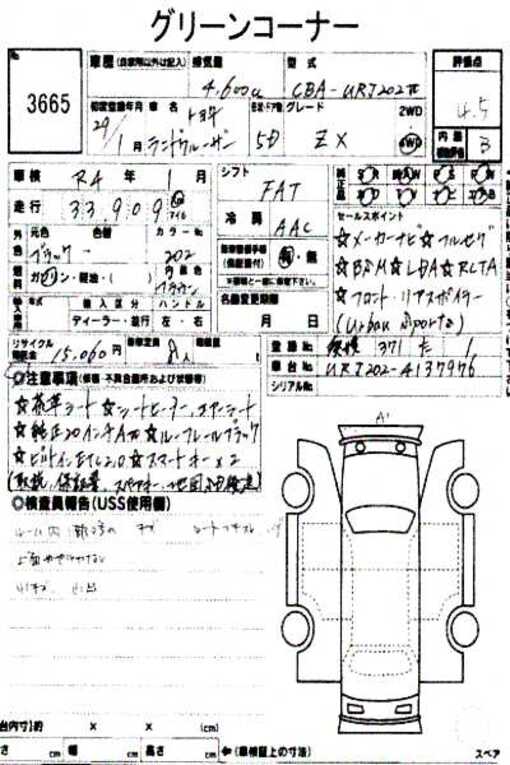 グリーンコーナー
No
3665
車歴 (自家用以外は記入) 排気量 型式
4,600cc CBA-URJ202
評価点
4.5
内装 B
初度登録年月 車名 グレード 2WD
29/1月 トヨタ ランドクルーザー 5D ZX 4WD
車検 R4 年 1 月
走行 33,909 km マイル
シフト
FAT
冷房 AAC
外色 元色 色替 カラーNo
ブラック 202
燃料 ガソリン・軽油・( ) 内装色 ブラウン
有・無
名義変更期限
月 日
純正品
セールスポイント
☆メーカーナビ☆フルセグ
☆BSM☆LDA☆RCTA
☆フロント・リアスポイラー
(Urban Sports)
輸入車 年式 輸入区分 ハンドル
ディーラー・並行 左・右
リサイクル預託金 15,060円 乗車定員 8人 積載量 t
登録No 371 た 1
車台No URJ202-4137976
シリアルNo
◎注意事項
☆本革シート☆シートヒーター、エアーシート
☆純正20インチAW☆ルーフレールブラック
☆ビルトインETC2.0☆スマートキー×2
(取説、保証書、スペアキー
◎検査員報告(USS使用欄)
ルーム内
A1
× × (cm)
さ cm 幅 cm 高さ cm ←(車検証上の寸法)
スペア